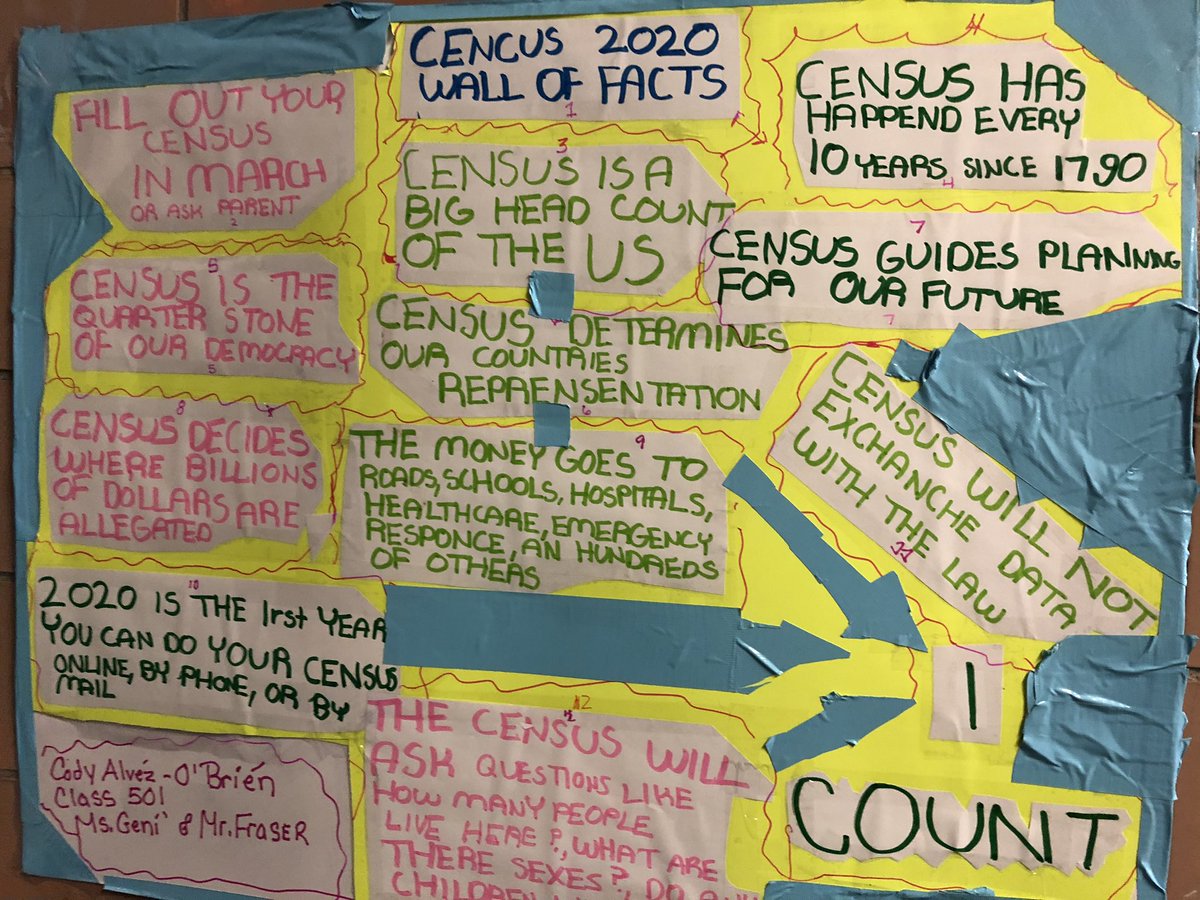 CENCUS 2020
WALL OF FACTS
1
FILL OUT YOUR
CENSUS
IN MARCH
OR ASK PARENT
2
3
CENSUS IS A
BIG HEAD COUNT
OF THE US
4
CENSUS HAS
HAPPEND EVERY
10 YEARS SINCE 1790
4
5
CENSUS IS THE
QUARTER STONE
OF OUR DEMOCRACY
5
CENSUS DETERMINES
OUR COUNTRIES
REPRENSENTATION
6
7
CENSUS GUIDES PLANNING
FOR OUR FUTURE
7
8
CENSUS DECIDES
WHERE BILLIONS
OF DOLLARS ARE
ALLEGATED
9
THE MONEY GOES TO
ROADS, SCHOOLS, HOSPITALS,
HEALTHCARE, EMERGENCY
RESPONCE, AN HUNDREDS
OF OTHERS
10
2020 IS THE 1rst YEAR
YOU CAN DO YOUR CENSUS
ONLINE, BY PHONE, OR BY
MAIL
CENSUS WILL NOT
EXCHANCHE DATA
WITH THE LAW
11
12
THE CENSUS WILL
ASK QUESTIONS LIKE
HOW MANY PEOPLE
LIVE HERE?, WHAT ARE
THERE SEXES?, DO
CHILDREN
I
COUNT
Cody Alvéz-O'Brién
Class 501
Ms. Geni' & Mr. FRASER